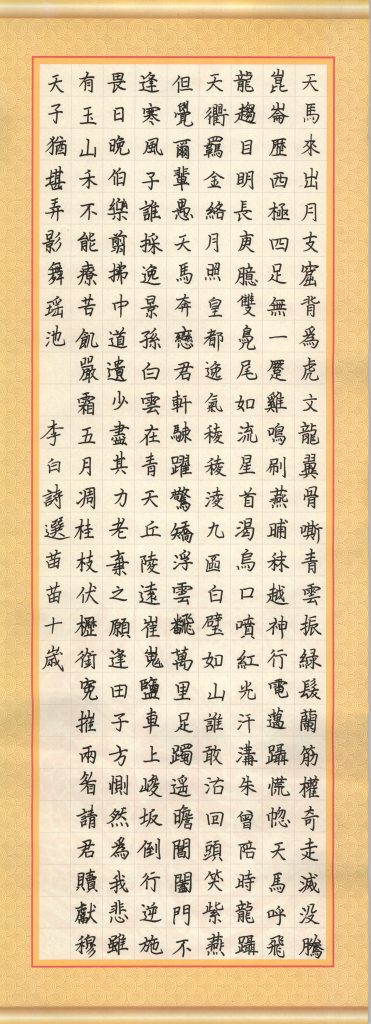 天馬來出月支窟背為虎文龍翼骨嘶青雲振緑髮蘭筋權奇走滅没騰
崑崙歷西極四足無一蹶雞鳴刷燕晡秣越神行電邁躡慌惚天馬呼飛
龍趨目明長庚臆雙鳧尾如流星首渴烏口噴紅光汗溝朱曾陪時龍躡
天衢羈金絡月照皇都逸氣稜稜淩九區白璧如山誰敢沽回頭笑紫燕
但覺爾輩愚天馬奔戀君軒駷躍驚矯浮雲飜萬里足躅遥瞻閶闔門不
逢寒風子誰採逸景孫白雲在青天丘陵遠崔嵬鹽車上峻坂倒行逆施
畏日晚伯樂翦拂中道遺少盡其力老棄之願逢田子方惻然為我悲雖
有玉山禾不能療苦飢嚴霜五月凋桂枝伏櫪銜寃摧兩眉請君贖獻穆
天子猶堪弄影舞瑶池 李白詩選苗苗十歲